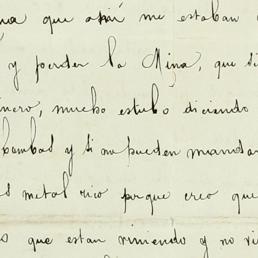 que aquí me estaban
y perder la Mina, que si
mucho estubo diciendo
y si no pueden mandar
metal rico porque creo que
que estan viniendo y no vi